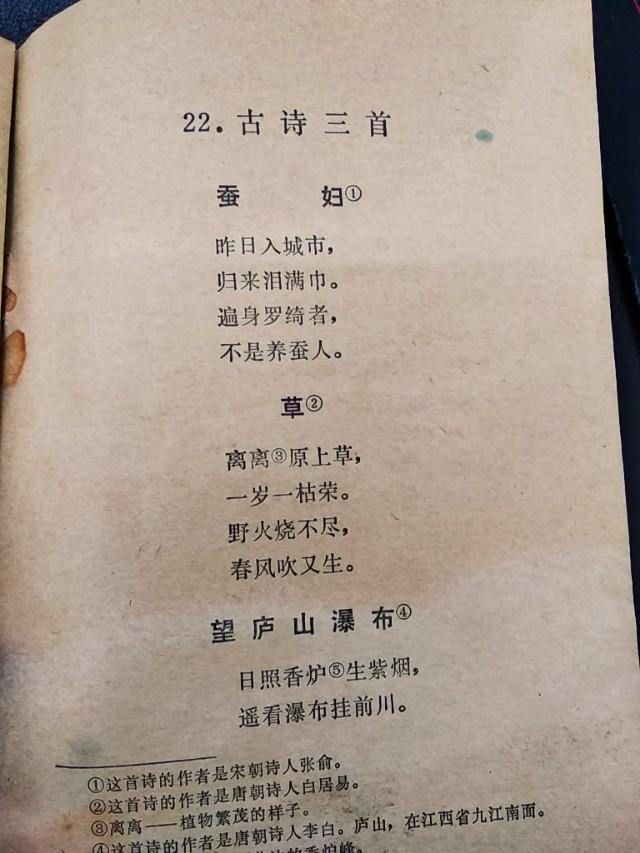 22. 古诗三首
蚕 妇①
昨日入城市，
归来泪满巾。
遍身罗绮者，
不是养蚕人。
草②
离离③原上草，
一岁一枯荣。
野火烧不尽，
春风吹又生。
望庐山瀑布④
日照香炉⑤生紫烟，
遥看瀑布挂前川。
①这首诗的作者是宋朝诗人张俞。
②这首诗的作者是唐朝诗人白居易。
③离离——植物繁茂的样子。
④这首诗的作者是唐朝诗人李白。庐山，在江西省九江南面。
的香炉峰。